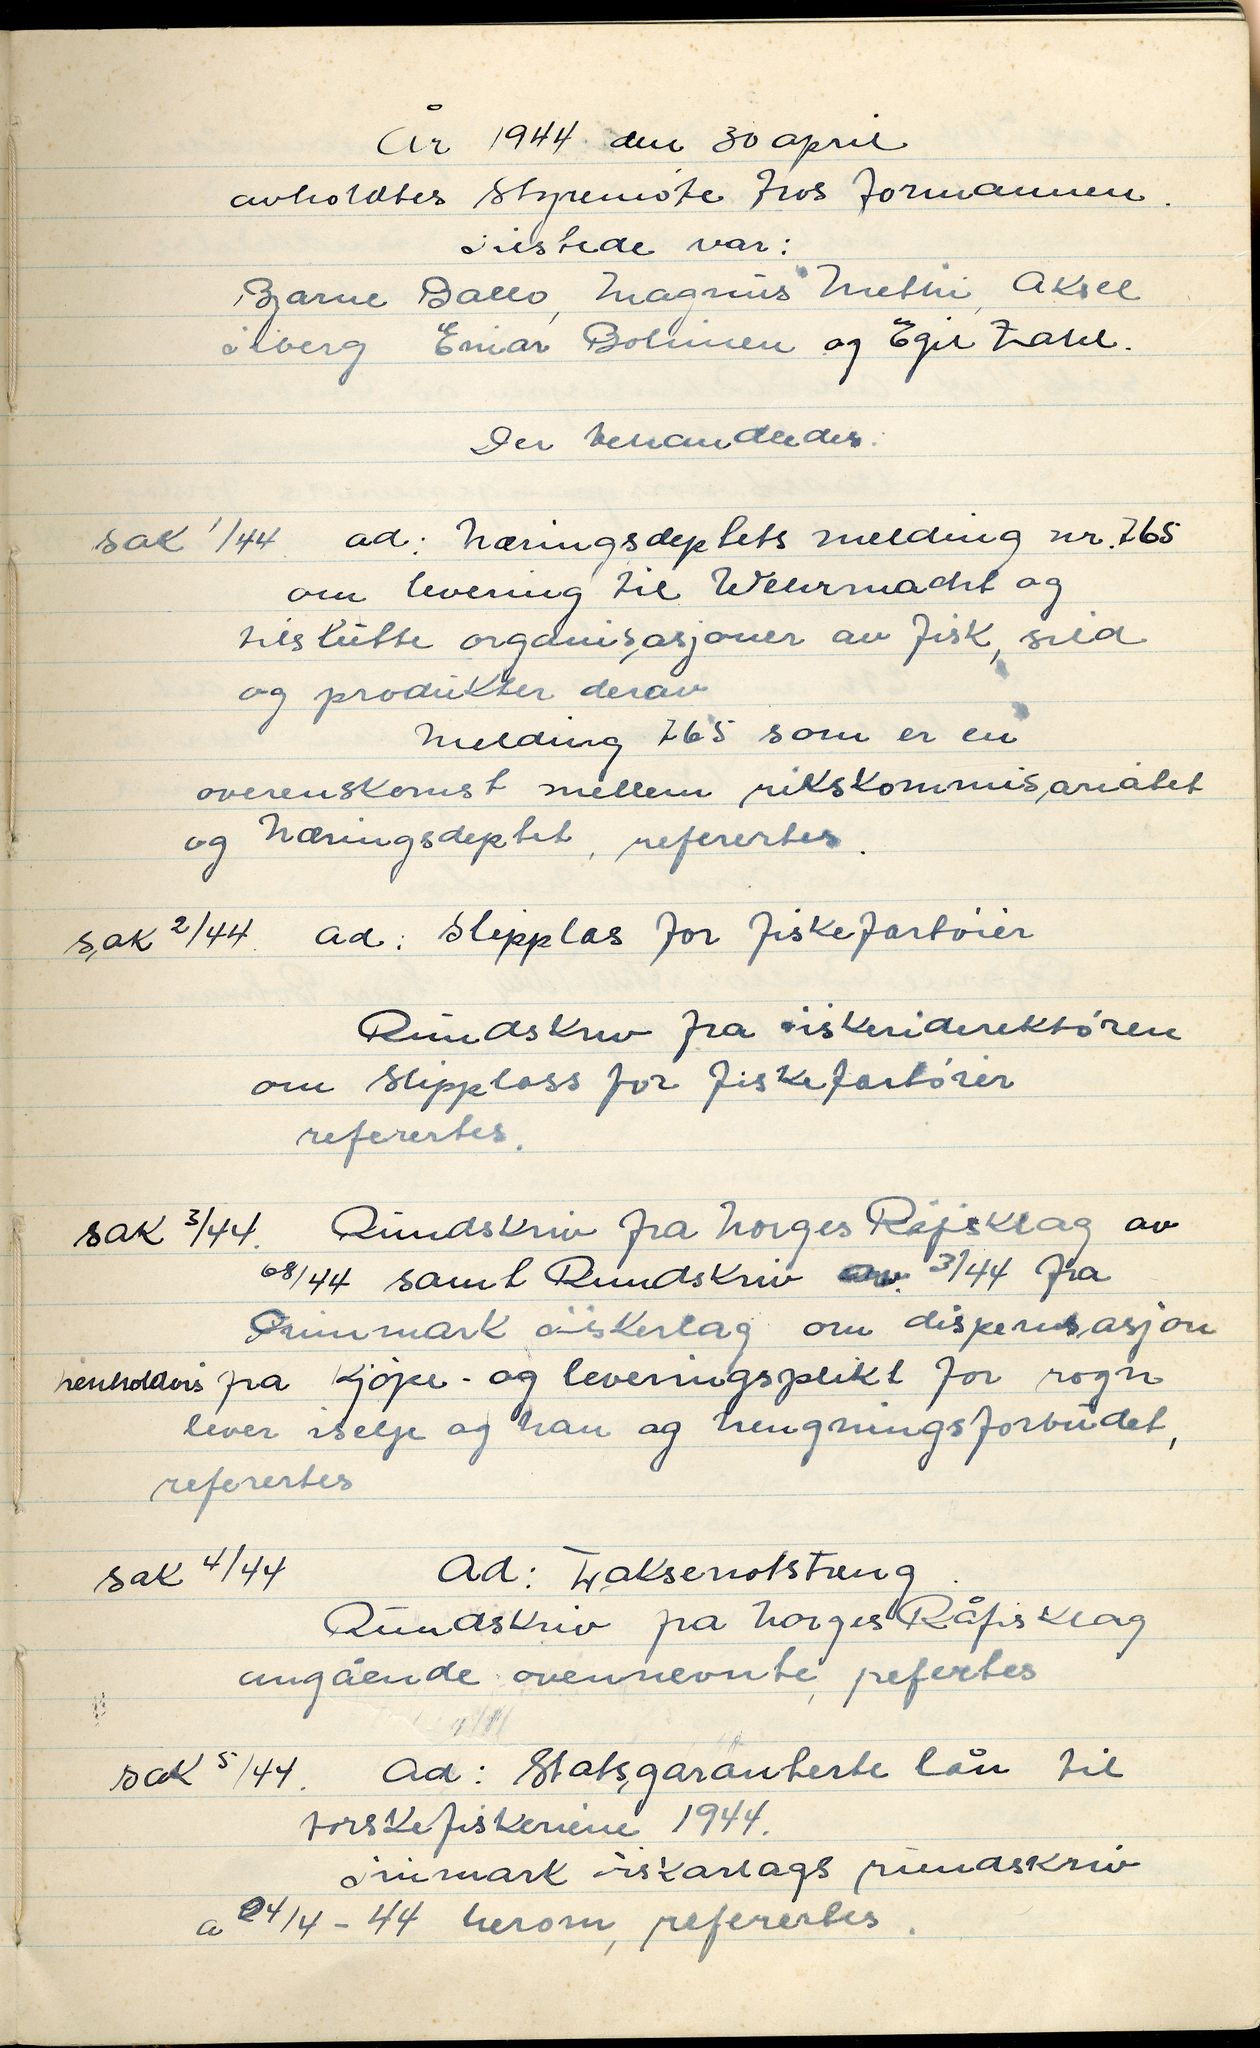 År 1944 den 30 april
avholdtes styremöte hos formannen.
Tilstede var:
Bjarne Ballo, Magnus Methi, Aksel
Einar Bolinen og Egil Zahl.
Der behandledes:
sak 1/44. ad: Næringsdeptets melding nr. 765
om levering til Wehrmacht og
tilslutte organisasjoner av fisk, sild
og produkter derav
Melding 765 som er en
overenskomst mellem rikskommisariatet
og Næringsdeptet, referertes.
sak 2/44. ad: Slipplas for fiskefartöier
Rundskriv fra Fiskeridirektören
om slipplass for fiskefartöier
referertes.
sak 3/44. Rundskriv fra Norges Råfisklag av
68/44 samt Rundskriv av. 3/44 fra
Finnmark Fiskerlag om dispensasjon
henholdvis fra kjöpe- og leveringsplikt for rogn
lever iselje og hau og hengningsforbudet,
referertes
sak 4/44 Ad: Laksenotstræng.
Rundskriv fra Norges Råfisklag
angående ovennevnte, refertes
sak 5/44. Ad: Statsgaranterte lån til
torskefiskeriene 1944.
Finmark Fiskarlags rundskriv
a 24/4-44 herom, referertes.